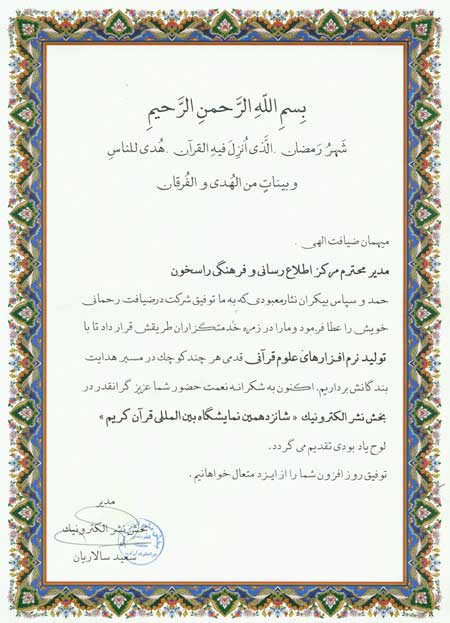 بِسمِ اللّهِ الرَّحمنِ الرَّحیمِ
شَهرُ رَمضان . الَّذی اُنزِلَ فیهِ القرآن . هُدی للناسِ
و بیناتٍ من الهُدی و الفُرقان
میهمان ضیافت الهی .
مدیر محترم مرکز اطلاع رسانی و فرهنگی راسخون
حمد و سپاس بیکران نثار معبودی که به ما توفیق شرکت در ضیافت رحمانی
خویش را عطا فرمود و ما را در زمره خدمتگزاران طریقش قرار داد تا با
تولید نرم افزارهای علوم قرآنی قدمی هر چند کوچک در مسیر هدایت
بندگانش برداریم. اکنون به شکرانه نعمت حضور شما عزیز گرانقدر در
بخش نشر الکترونیک « شانزدهمین نمایشگاه بین المللی قرآن کریم »
لوح یاد بودی تقدیم می گردد.
توفیق روز افزون شما را از ایزد متعال خواهانیم .
مدیر
بخش نشر الکترونیک
سعید سالاریان